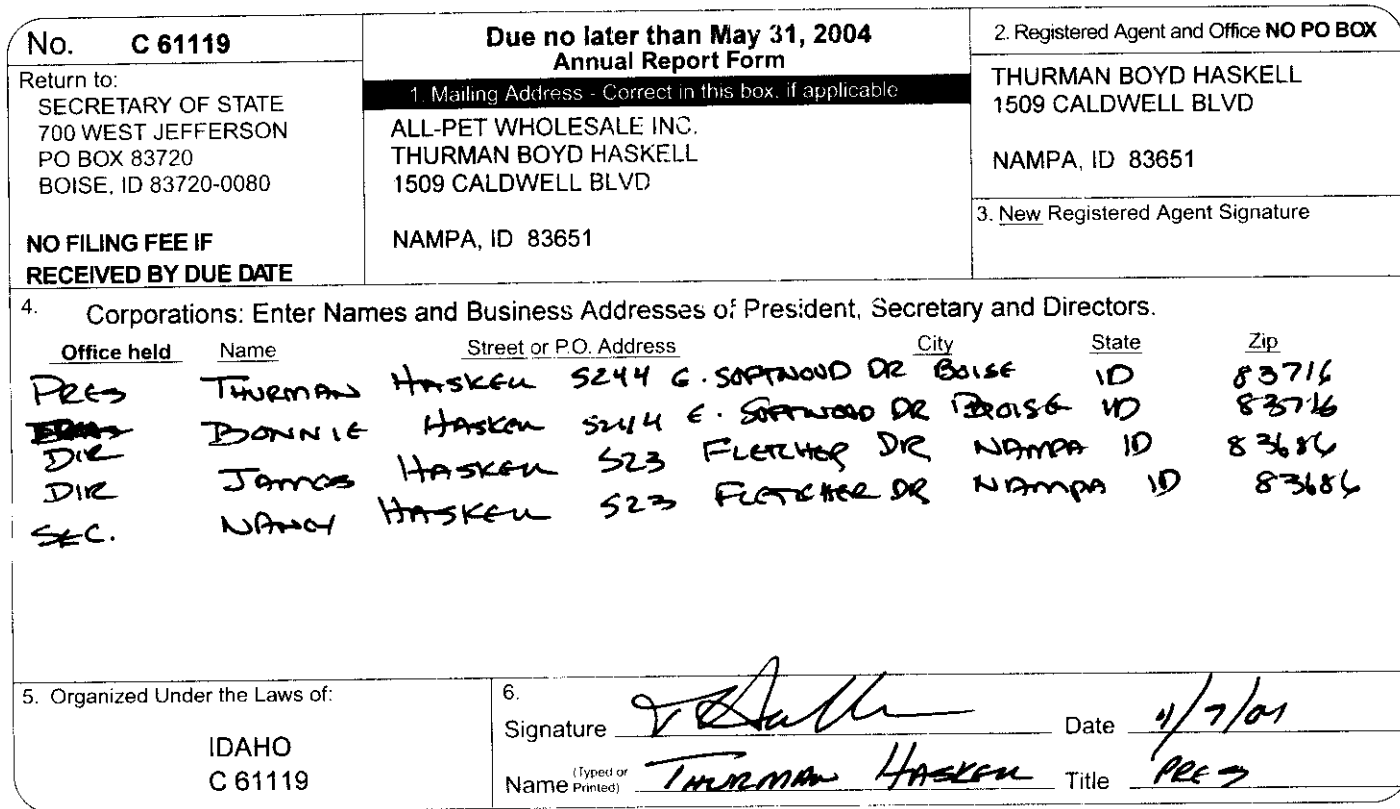 No. C 61119
Return to:
SECRETARY OF STATE
700 WEST JEFFERSON
PO BOX 83720
BOISE, ID 83720-0080
NO FILING FEE IF
RECEIVED BY DUE DATE
Due no later than May 31, 2004
Annual Report Form
1. Mailing Address - Correct in this box, if applicable
ALL-PET WHOLESALE INC.
THURMAN BOYD HASKELL
1509 CALDWELL BLVD
NAMPA, ID 83651
2. Registered Agent and Office NO PO BOX
THURMAN BOYD HASKELL
1509 CALDWELL BLVD
NAMPA, ID 83651
3. New Registered Agent Signature
4. Corporations: Enter Names and Business Addresses of President, Secretary and Directors.
Office held Name Street or P.O. Address City State Zip
PRES THURMAN HASKELL 5244 E. SOFTWOOD DR BOISE ID 83716
DIR BONNIE HASKELL 5244 E. SOFTWOOD DR BOISE ID 83716
DIR JAMES HASKELL 523 FLETCHER DR NAMPA ID 83686
SEC. NANCY HASKELL 523 FLETCHER DR NAMPA ID 83686
5. Organized Under the Laws of:
IDAHO
C 61119
6.
Signature Date 4/7/04
Name (Typed or Printed) THURMAN HASKELL Title PRES